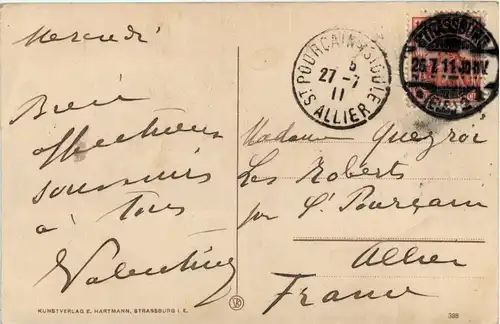 Mercredi
Bien
affectueux
souvenirs
à tous
Valentine
KUNSTVERLAG E. HARTMANN, STRASSBURG I. E.
ST POURÇAIN-S-SIOULE
27-7
11
ALLIER
STRASSBURG
26.7.11.
(Els.)
Madame Queyroi
Les Roberts
par St Pourçain
Allier
France
388